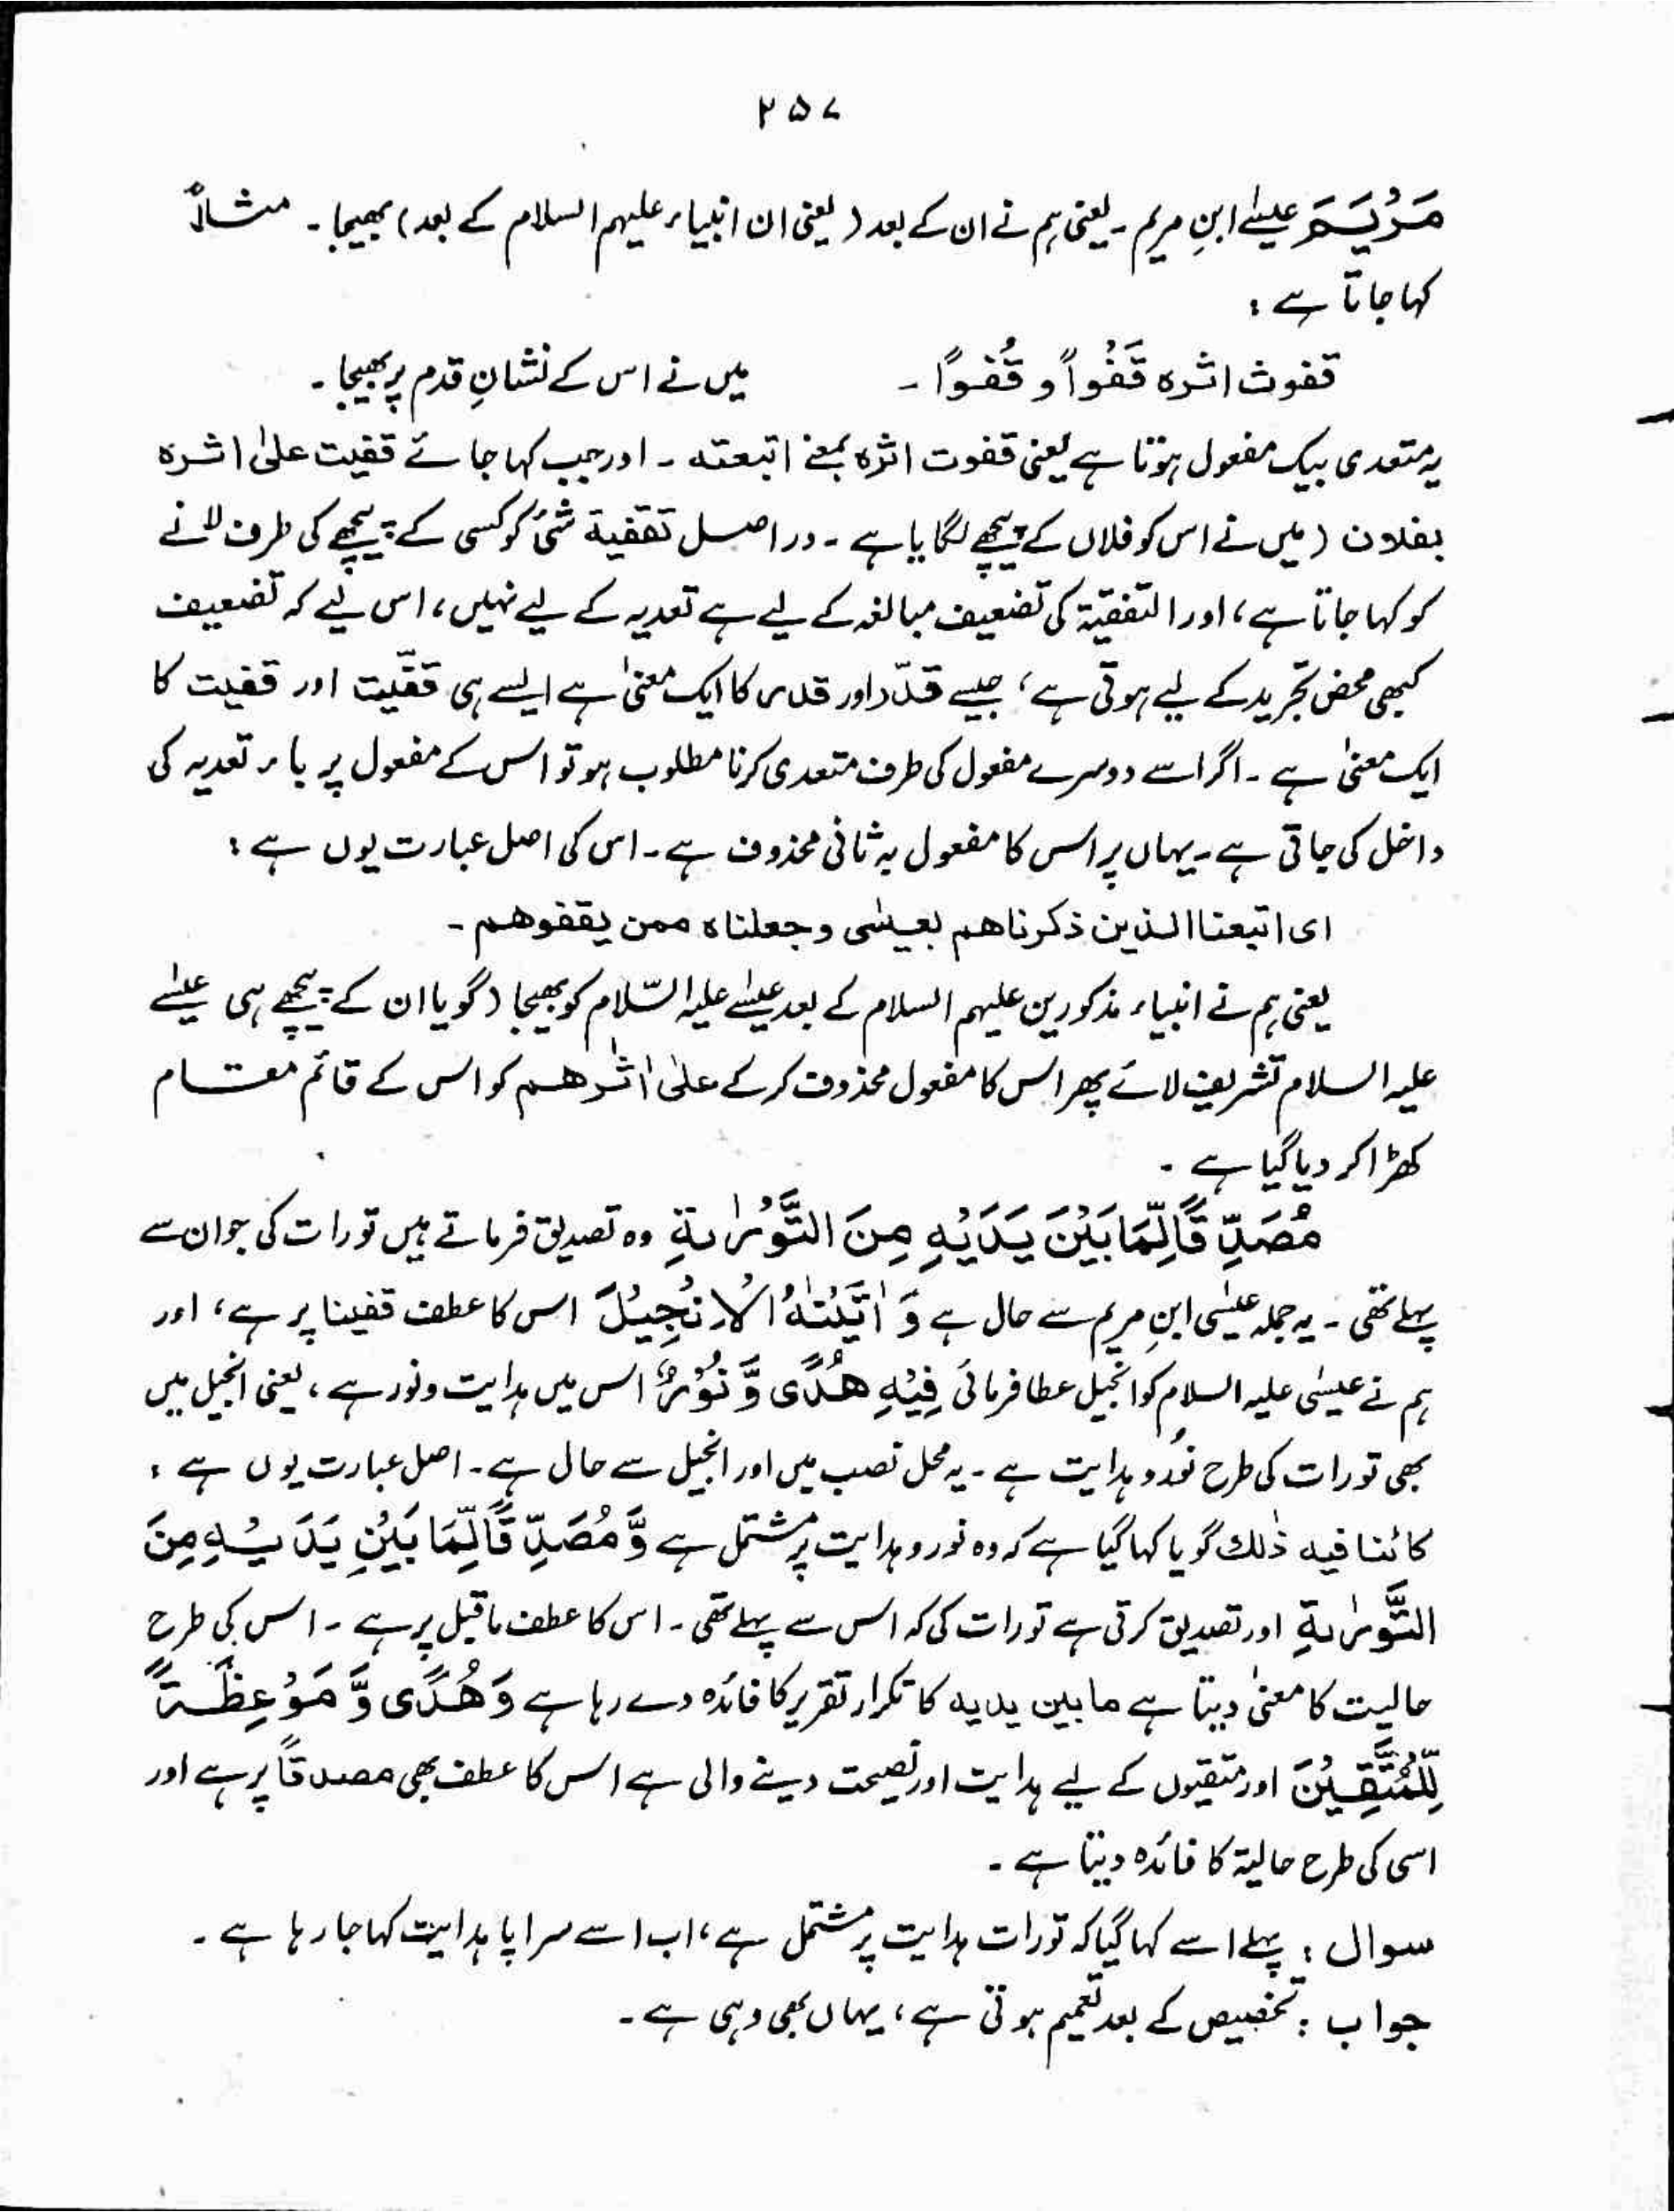 ۲۵۷
مَرْیَمَ عیسےٰ ابنِ مریم ۔ یعنی ہم نے ان کے بعد ( یعنی ان انبیاء علیہم السلام کے بعد ) بھیجا ۔ مثلاً
کہا جاتا ہے :
قفوت اثرہ قَفْواً و قُفوًا ۔ میں نے اس کے نشانِ قدم پر بھیجا ۔
یہ متعدی بیک مفعول ہوتا ہے یعنی قفوت اثرہ بمعنے اتبعتہ ۔ اور جب کہا جائے قفیت علیٰ اثرہ
بفلان ( میں نے اس کو فلاں کے پیچھے لگایا ہے ۔ در اصل تقفیۃ شئ کو کسی کے پیچھے کی طرف لانے
کو کہا جاتا ہے ، اور التقفیۃ کی تضعیف مبالغہ کے لیے ہے تعدیہ کے لیے نہیں ، اس لیے کہ تضعیف
کبھی محض تجرید کے لیے ہوتی ہے ، جیسے قدّر اور قدر کا ایک معنیٰ ہے ایسے ہی قفّیت اور قفیت کا
ایک معنیٰ ہے ۔ اگر اسے دوسرے مفعول کی طرف متعدی کرنا مطلوب ہو تو اس کے مفعول پر باء تعدیہ کی
داخل کی جاتی ہے ۔ یہاں پر اس کا مفعول بہ ثانی محذوف ہے ۔ اس کی اصل عبارت یوں ہے :
ای اتبعنا الذین ذکرناھم بعیسٰی وجعلناہ ممن یقفوھم ۔
یعنی ہم نے انبیاء مذکورین علیہم السلام کے بعد عیسےٰ علیہ السّلام کو بھیجا ( گویا ان کے پیچھے ہی عیسےٰ
علیہ السلام تشریف لائے پھر اس کا مفعول محذوف کرکے علیٰ اٰثٰرھم کو اس کے قائم مقام
کھڑا کر دیا گیا ہے ۔
مُصَدِّقًا لِّمَا بَیْنَ یَدَیْہِ مِنَ التَّوْرٰىۃِ وہ تصدیق فرماتے ہیں تورات کی جو ان سے
پہلے تھی ۔ یہ جملہ عیسٰی ابنِ مریم سے حال ہے وَ اٰتَیْنٰہُ الْاِنْجِیْلَ اس کا عطف قفینا پر ہے ، اور
ہم نے عیسٰی علیہ السلام کو انجیل عطا فرمائی فِیْہِ ھُدًی وَّ نُوْرٌ اس میں ہدایت و نور ہے ، یعنی انجیل میں
بھی تورات کی طرح نُور و ہدایت ہے ۔ یہ محل نصب میں اور انجیل سے حال ہے ۔ اصل عبارت یوں ہے :
کائنا فیہ ذٰلک گویا کہا گیا ہے کہ وہ نور و ہدایت پر مشتمل ہے وَّ مُصَدِّقًا لِّمَا بَیْنِ یَدَیْہِ مِنَ
التَّوْرٰىۃِ اور تصدیق کرتی ہے تورات کی کہ اس سے پہلے تھی ۔ اس کا عطف ماقبل پر ہے ۔ اس کی طرح
حالیت کا معنیٰ دیتا ہے مابین یدیہ کا تکرار تقریر کا فائدہ دے رہا ہے وَ ھُدًی وَّ مَوْعِظَۃً
لِّلْمُتَّقِیْنَ اور متقیوں کے لیے ہدایت اور نصیحت دینے والی ہے اس کا عطف بھی مصدقاً پر ہے اور
اسی کی طرح حالیۃ کا فائدہ دیتا ہے ۔
سوال : پہلے اسے کہا گیا کہ تورات ہدایت پر مشتمل ہے ، اب اسے سراپا ہدایت کہا جا رہا ہے ۔
جواب : تخصیص کے بعد تعمیم ہوتی ہے ، یہاں بھی وہی ہے ۔